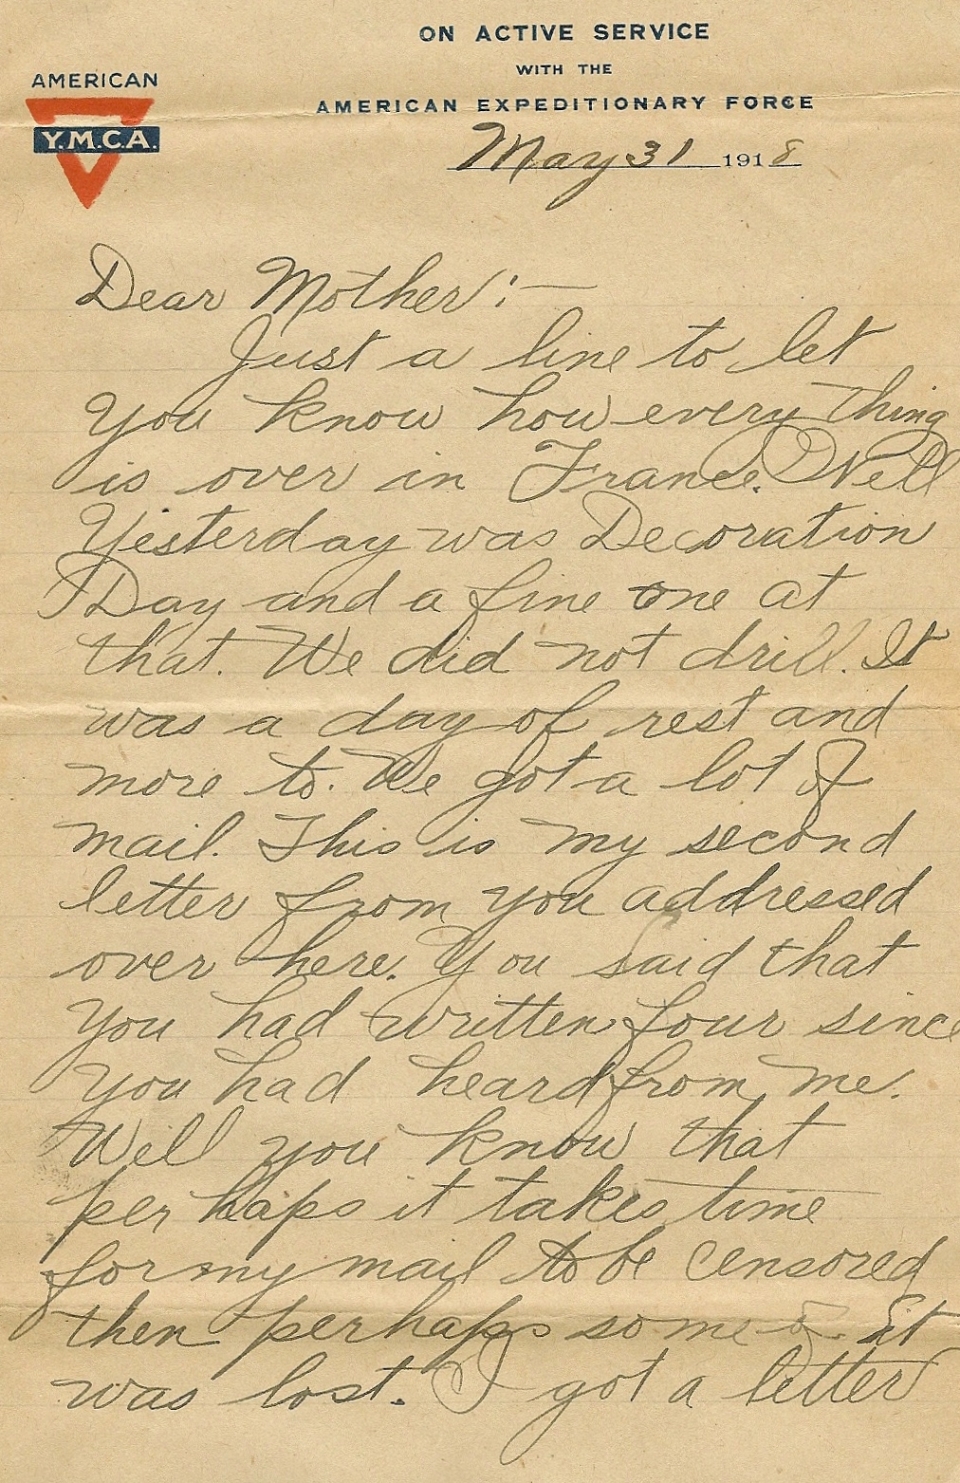 ON ACTIVE SERVICE
WITH THE
AMERICAN EXPEDITIONARY FORCE
AMERICAN
Y.M.C.A.
May 31 1918
Dear Mother:—
Just a line to let
you know how every thing
is over in France. Well
Yesterday was Decoration
Day and a fine one at
that. We did not drill. It
was a day of rest and
more to. We got a lot of
mail. This is my second
letter from you addressed
over here. You said that
you had written four since
you had heard from me.
Well you know that
perhaps it takes time
for my mail to be censored
then perhaps some of it
was lost. I got a letter